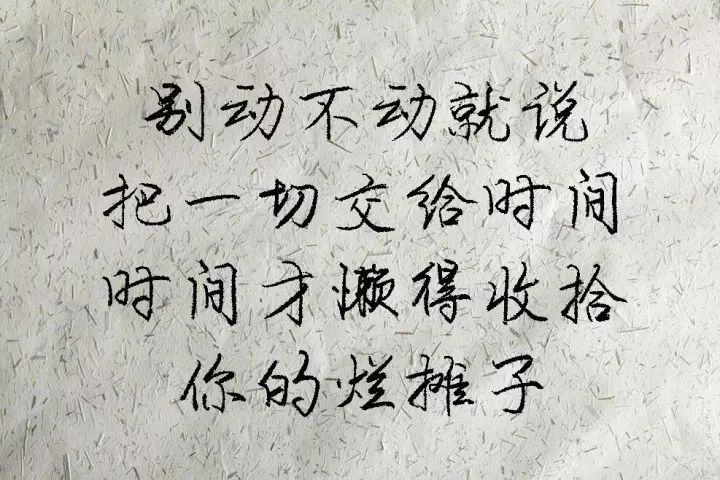 别动不动就说
把一切交给时间
时间才懒得收拾
你的烂摊子